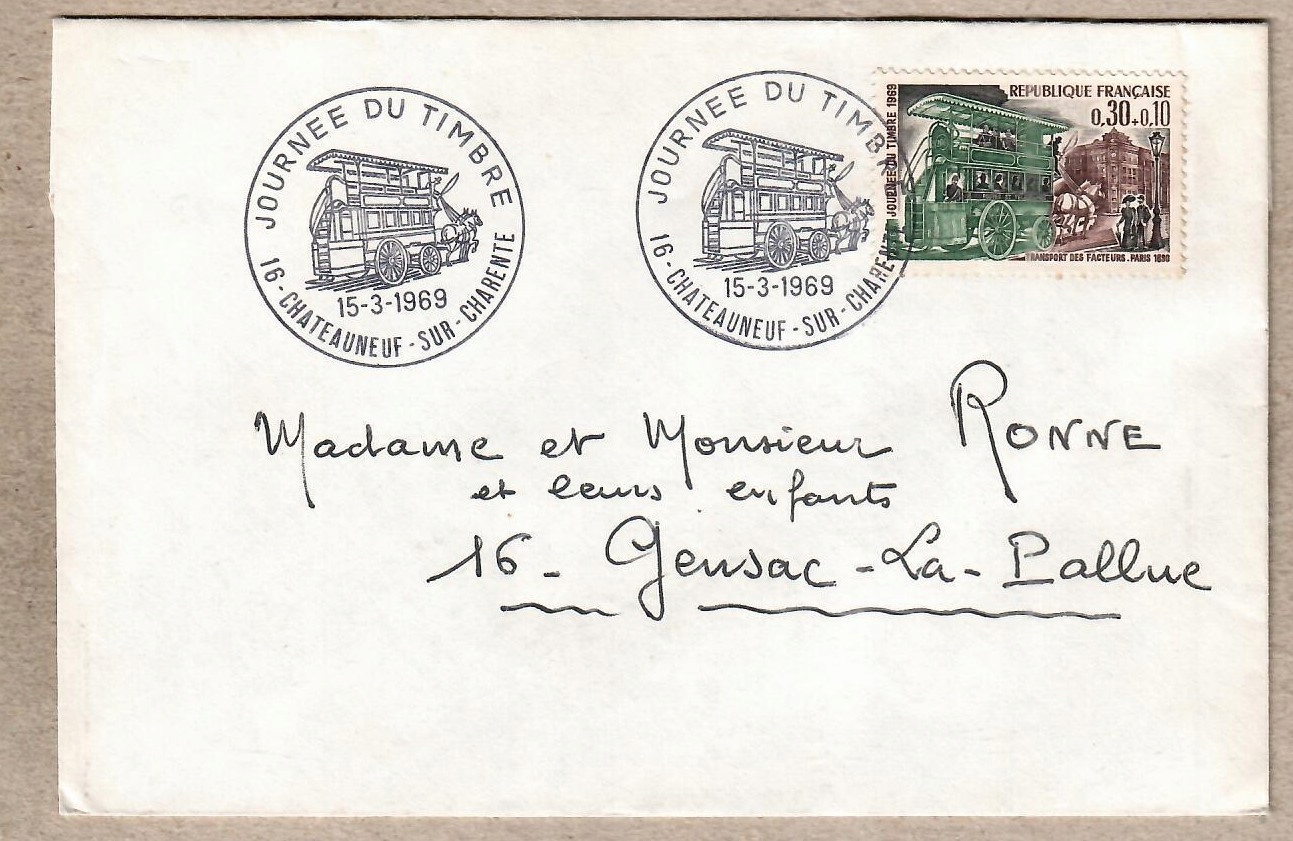 JOURNEE DU TIMBRE
15-3-1969
16-CHATEAUNEUF-SUR-CHARENTE
JOURNEE DU TIMBRE
15-3-1969
16-CHATEAUNEUF-SUR-CHARENTE
REPUBLIQUE FRANÇAISE
0,30+0,10
JOURNÉE DU TIMBRE 1969
TRANSPORT DES FACTEURS. PARIS 1890
Madame et Monsieur RONNE
et leurs enfants
16 - Gensac - La - Pallue